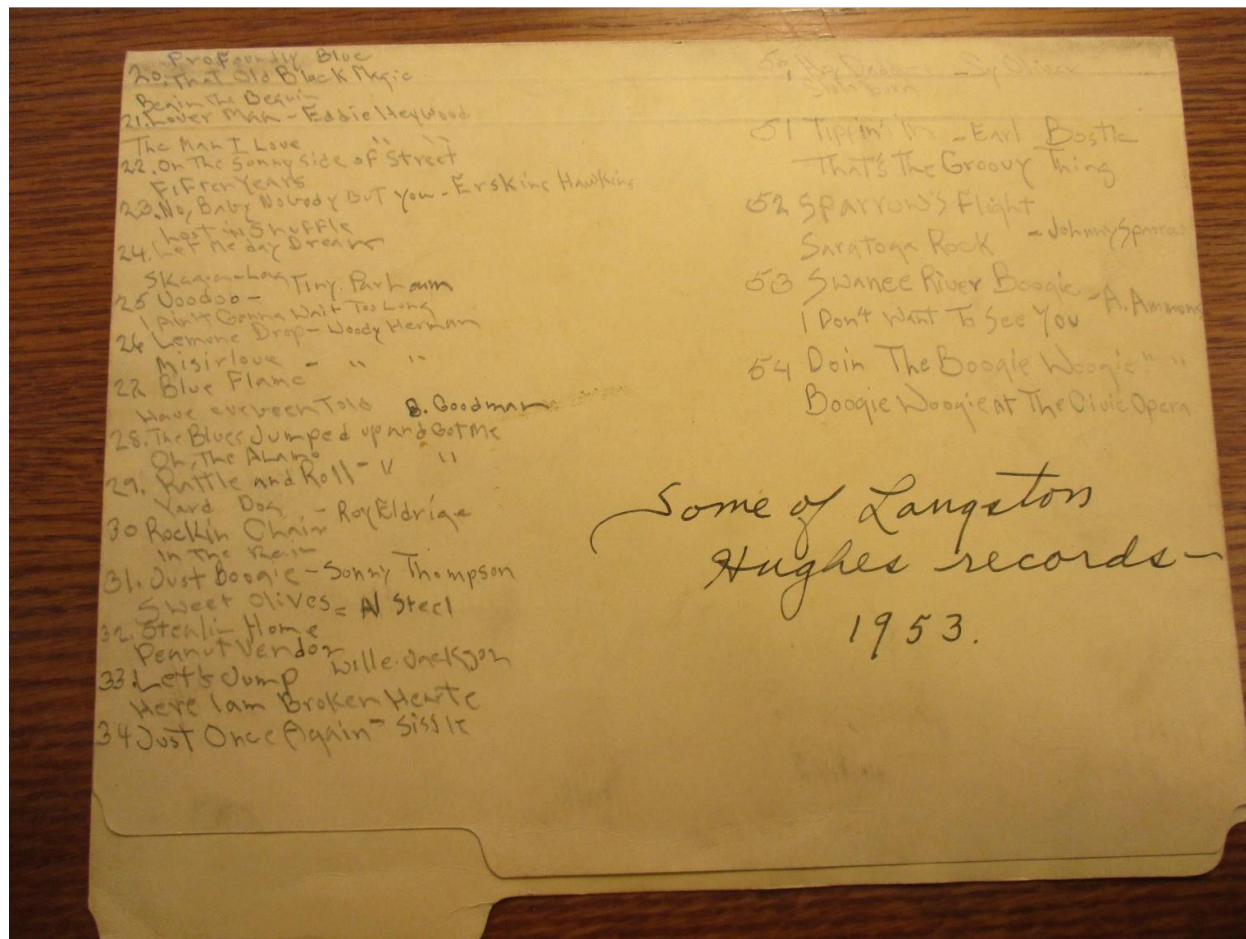 Profoundly Blue
20. That Old Black Mgic
Begin the Beguin
21. Lover Man - Eddie Heywood
The Man I Love " "
22. On The Sonny Side of Street
Fiften Years
23. No, Baby Nobody But You - Erskine Hawkins
Lost in Shuffle
24. Let Me day Dream
Tiny Parham
25 Voodoo -
I Ain't Gonna Wait Too Long
26 Lemone Drop - Woody Herman
Misirlove - " "
22 Blue Flame
Have everbeen Told B. Goodman
28. The Blues Jumped up and Got Me
Oh, The Alamo
29. Rattle and Roll - " "
Yard Dog - Roy Eldrige
30 Rockin Chair
In The
31. Just Boogie - Sonny Thompson
Sweet Olives = Al Steel
32. Stealin Home
Peanut Vendor
33. Let's Jump Wille Jackson
Here I am Broken Hearte
34 Just Once Again - Sissle
50, Hey - Sy Oliver
51 Tippin' In - Earl Bostic
That's The Groovy Thing
52 Sparrow's Flight
Saratoga Rock - Johnny Sparrow
53 Swanee River Boogie - A. Ammons
I Don't Want To See You
54 Doin The Boogie Woogie " "
Boogie Woogie at The Civic Opera
Some of Langston
Hughes records -
1953.